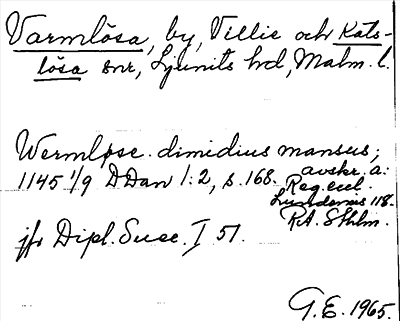 Varmlösa, by, Villie och Kats-
lösa snr, Ljunits hd, Malm. l.
Wermløse. dimidius mansus;
1145 1/9 DDan 1:2, s. 168. avskr. a:
Reg. eccl.
Lundensis 118.
RA. Sthlm.
jfr Dipl. Suec. I 51.
G.E. 1965.